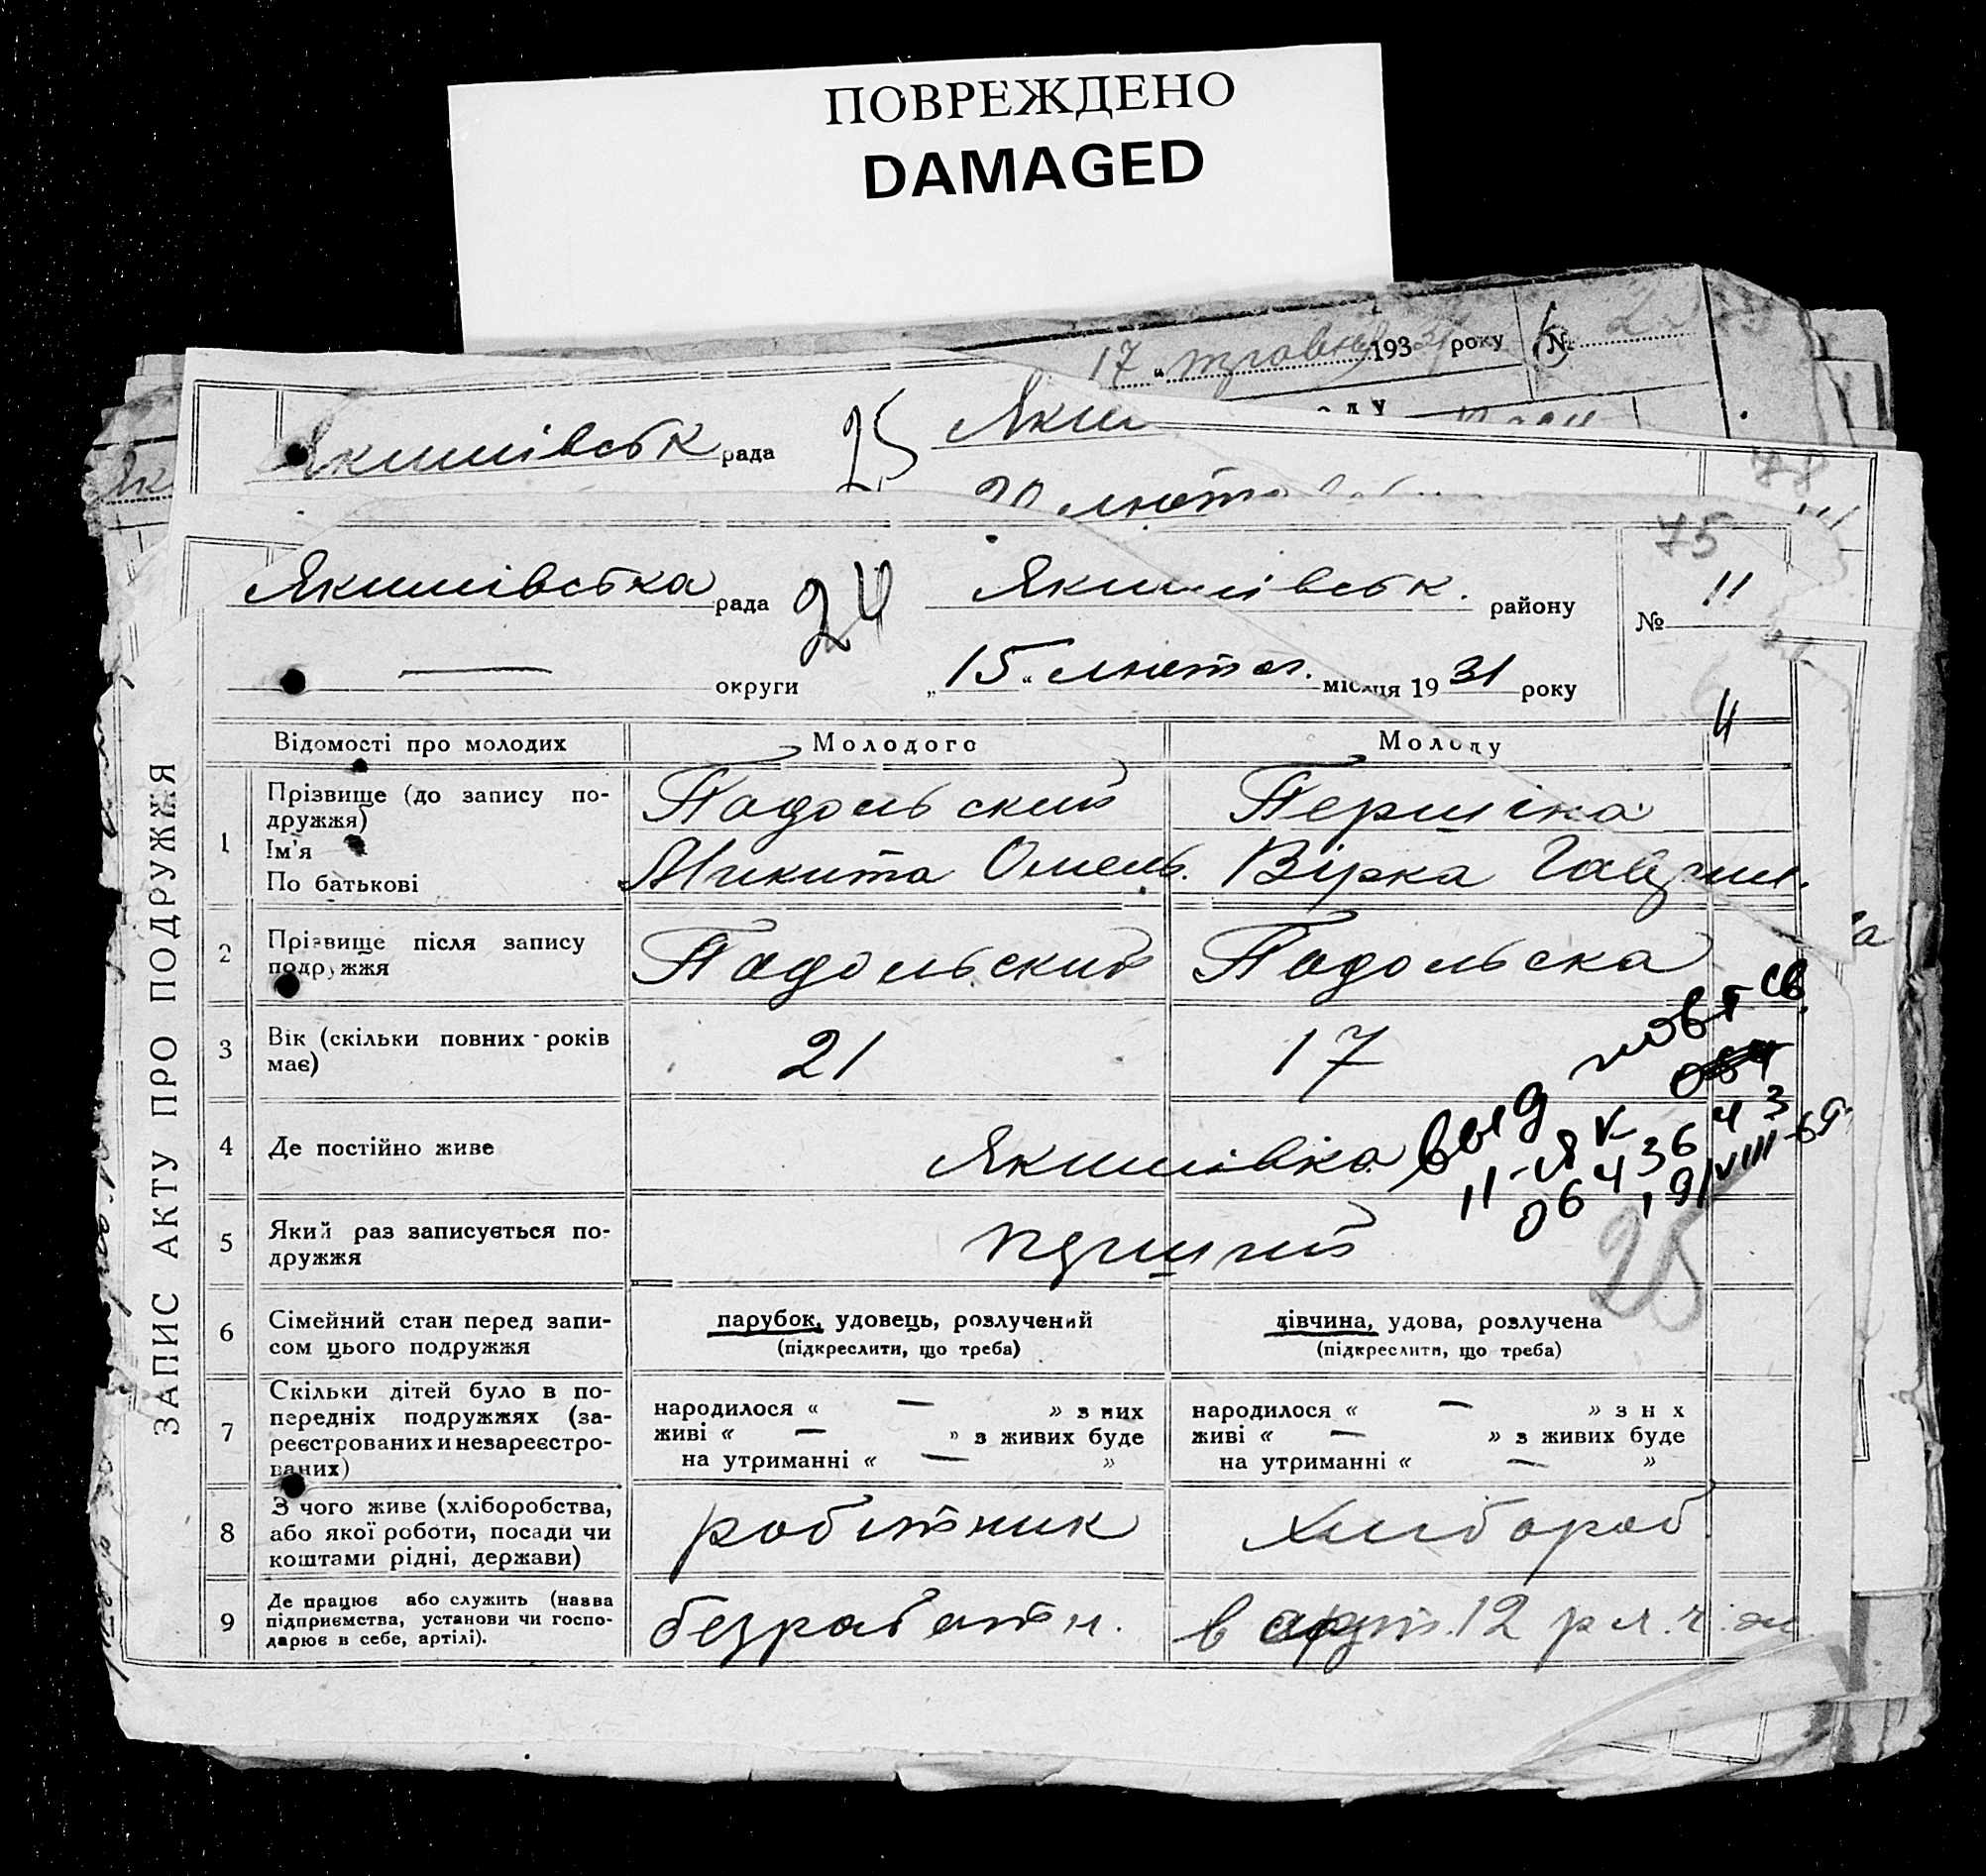 ПОВРЕЖДЕНО
DAMAGED
17 " травня 193 року №
Якимівськ рада 25 Яким
78
20 лютого
75
Якимівська рада 24 Якимівськ. району № 11
— округи „15" лютог. місяця 1931 року
ЗАПИС АКТУ ПРО ПОДРУЖЖЯ
Відомості про молодих Молодого Молоду
1 Прізвище (до запису по-
дружжя)
Ім'я
По батькові
Подольский Першіна
Микита Омель. Вірка Гаврил.
2 Прізвище після запису
подружжя
Подольский Подольська
3 Вік (скільки повних років
має)
21 17
4 Де постійно живе
Якимівка
выд повт св
064
11-ЯК
064364 3
19/VIII-69
5 Який раз записується по-
дружжя
перший
25
6 Сімейний стан перед запи-
сом цього подружжя
парубок, удовець, розлучений
(підкреслити, що треба)
дівчина, удова, розлучена
(підкреслити, що треба)
7 Скільки дітей було в по-
передніх подружжях (за-
реєстрованих и незареєстро-
ваних)
народилося « — » з них
живі « — » з живих буде
на утриманні « — »
народилося « — » з н х
живі « — » з живих буде
на утриманні « — »
8 З чого живе (хліборобства,
або якої роботи, посади чи
коштами рідні, держави)
робітник хлібороб
9 Де працює або служить (назва
підприємства, установи чи госпо-
дарює в себе, артілі).
безработн. в арт. 12